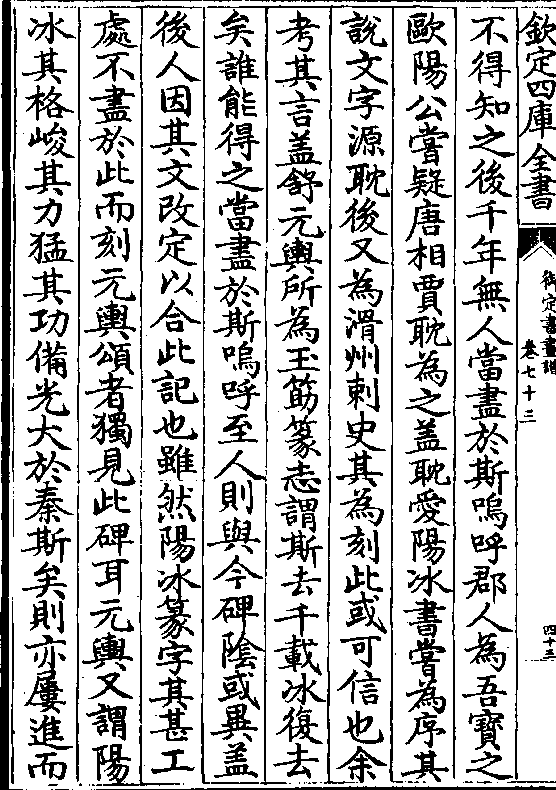 欽定四庫全書
御定書畫譜
卷七十三
四十三
不得知之後千年無人當盡於斯嗚呼郡人為吾寶之
歐陽公嘗疑唐相賈耽為之盖耽愛陽冰書嘗為序其
說文字源耽後又為滑州刺史其為刻此或可信也余
考其言盖舒元輿所為玉筯篆志謂斯去千載冰復去
矣誰能得之當盡於斯嗚呼至人則與今碑陰或異盖
後人因其文改定以合此記也雖然陽冰篆字其甚工
處不盡於此而刻元輿頌者獨見此碑耳元輿又謂陽
冰其格峻其力猛其功備光大於秦斯矣則亦屢進而